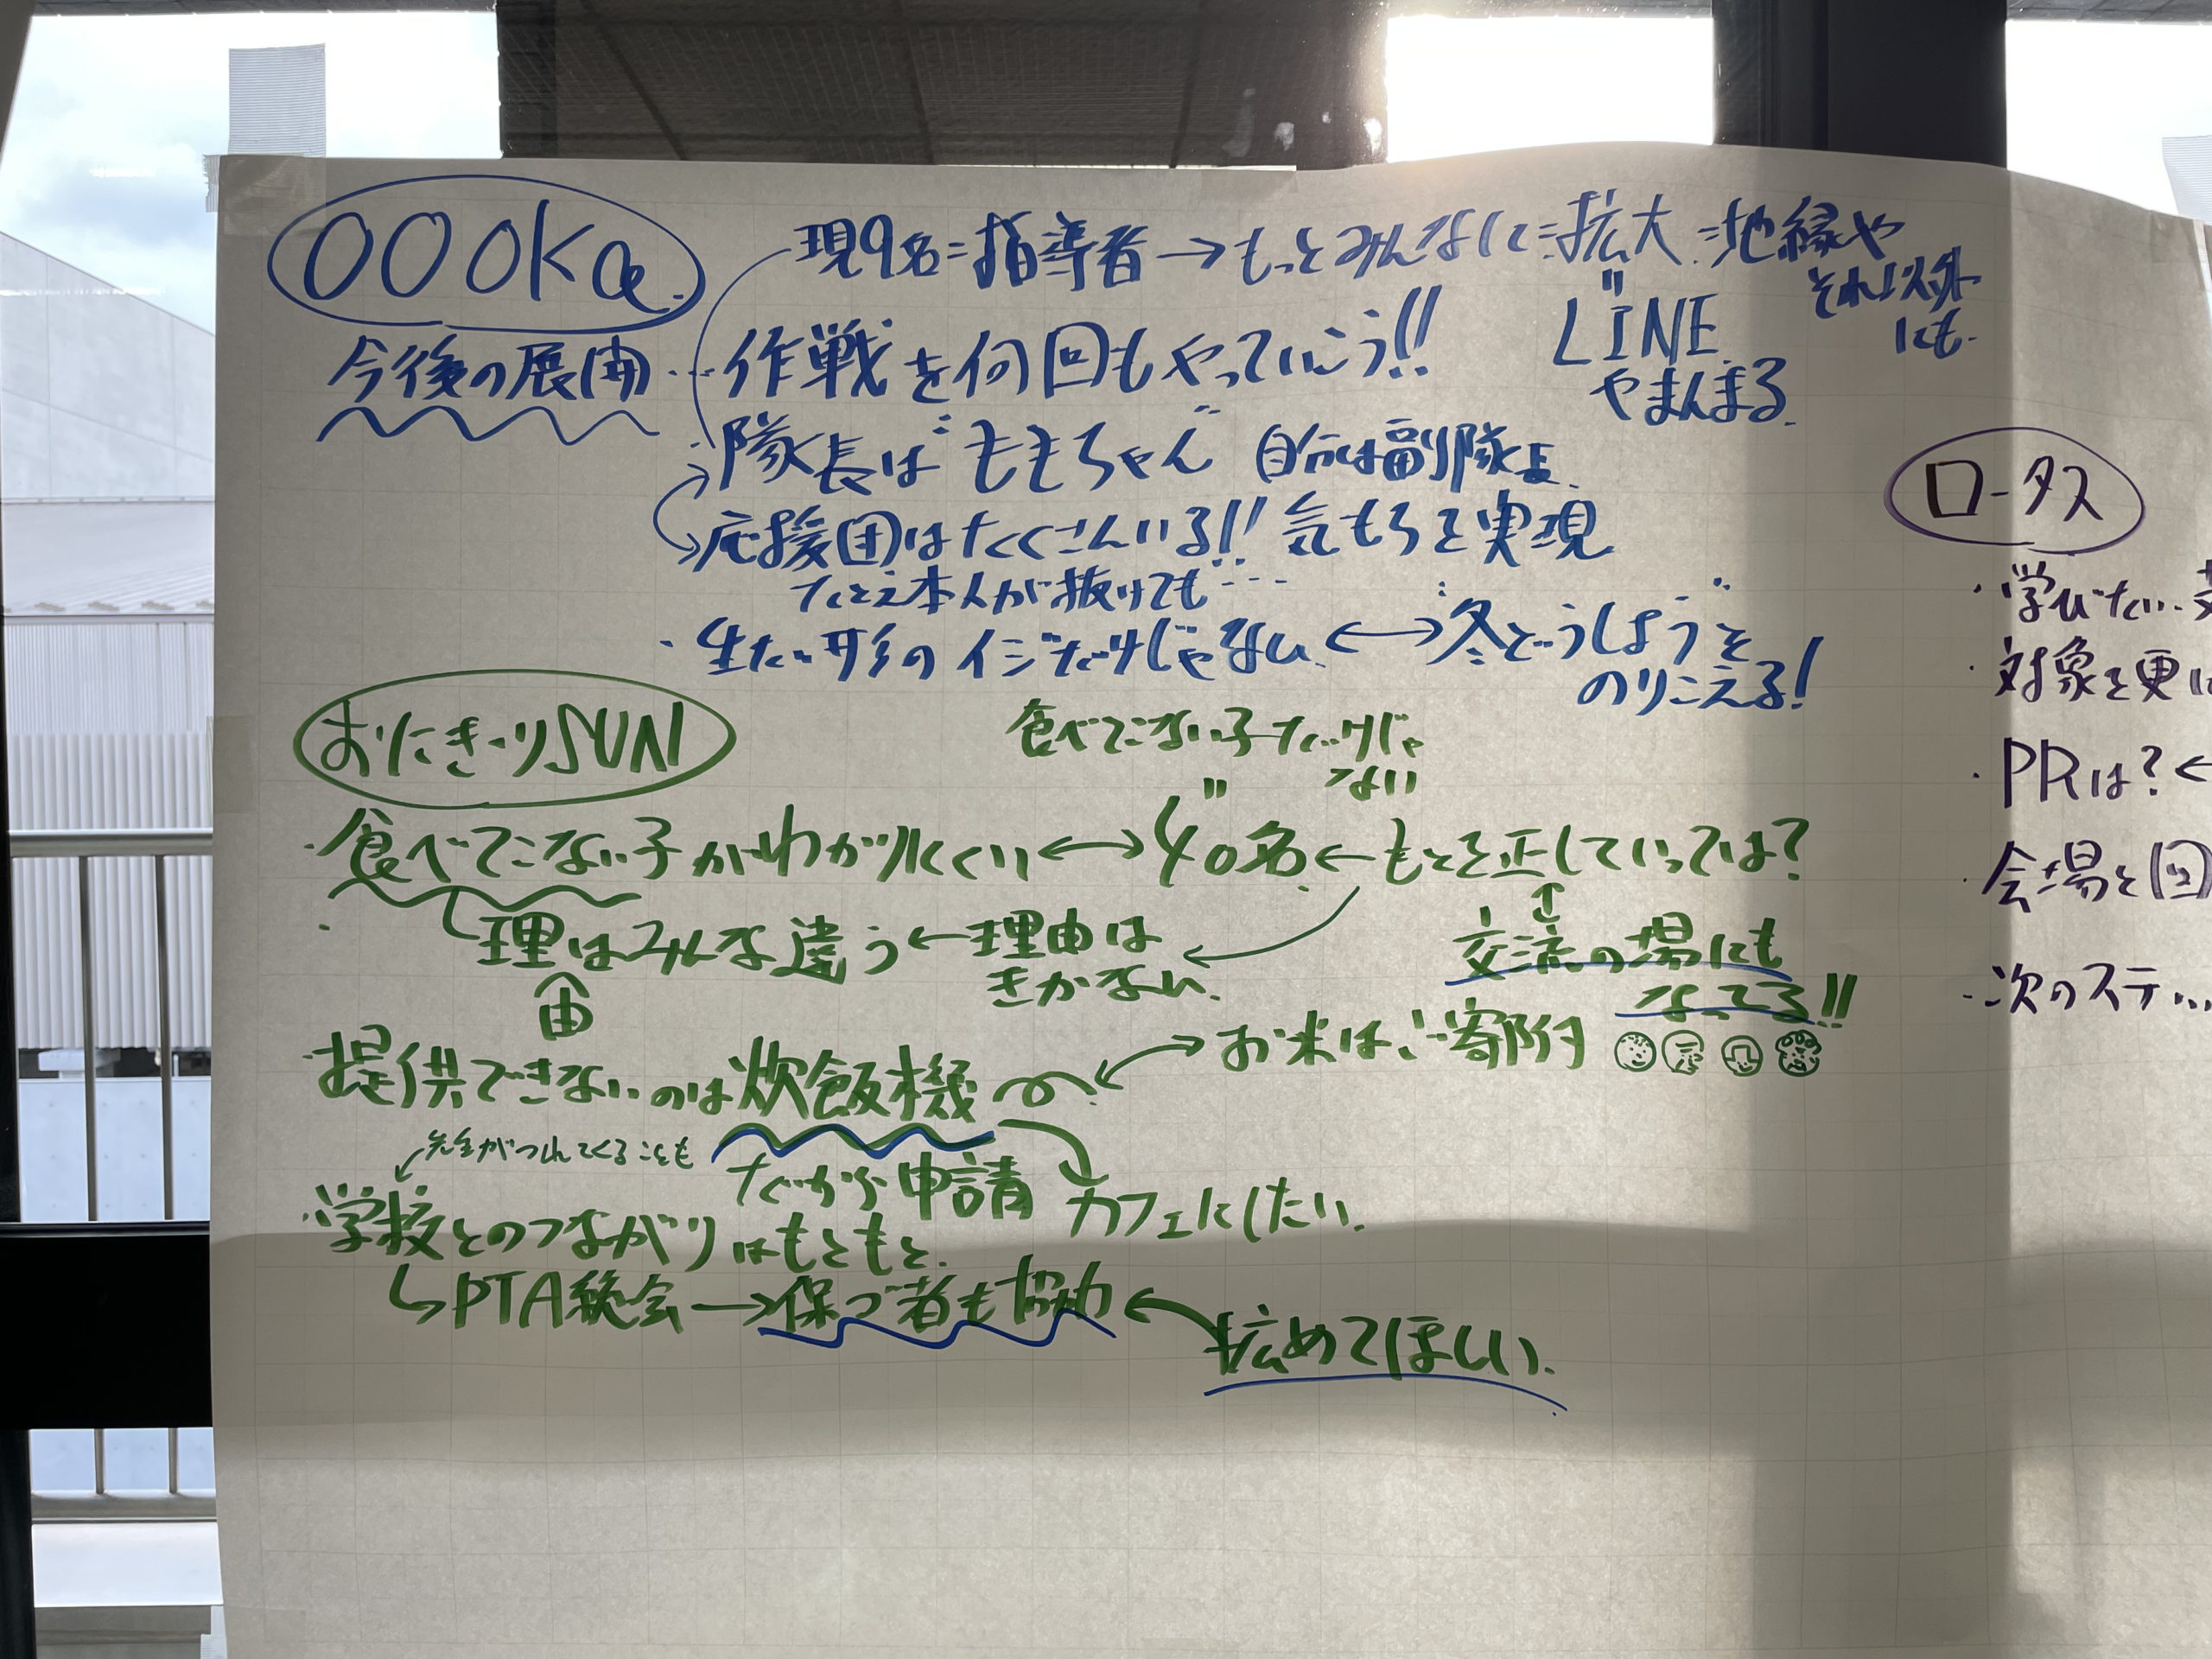 OOOKa
現9名=指導者→もっとみんなに=拡大=地縁や
それ以外
にも.
LINE
やまんまる.
今後の展開…作戦を何回もやっていこう!!
・隊長は"ももちゃん" 自分は副隊長.
応援団はたくさんいる!! 気もちを実現
たとえ本人が抜けても…
・生だい形のイジだけじゃない.←→"冬どうしよう"を
のりこえる!
おにぎりSUN
食べてこない子だけじゃ
ない
・食べてこない子がわかりにくい←→40名.←もとを正していっては?
理はみんな違う←理由は
きかない.
由
交流の場にも
なってる!!
・提供できないのは炊飯機
お米はご寄附
先生がつれてくることも
だから申請
カフェにしたい.
・学校とのつながりはもともと.
↳PTA総会→保ゴ者も協力←拡めてほしい.
ロータス
・学びたい
・対象を更に
・PRは?←
・会場と回
・次のステ…